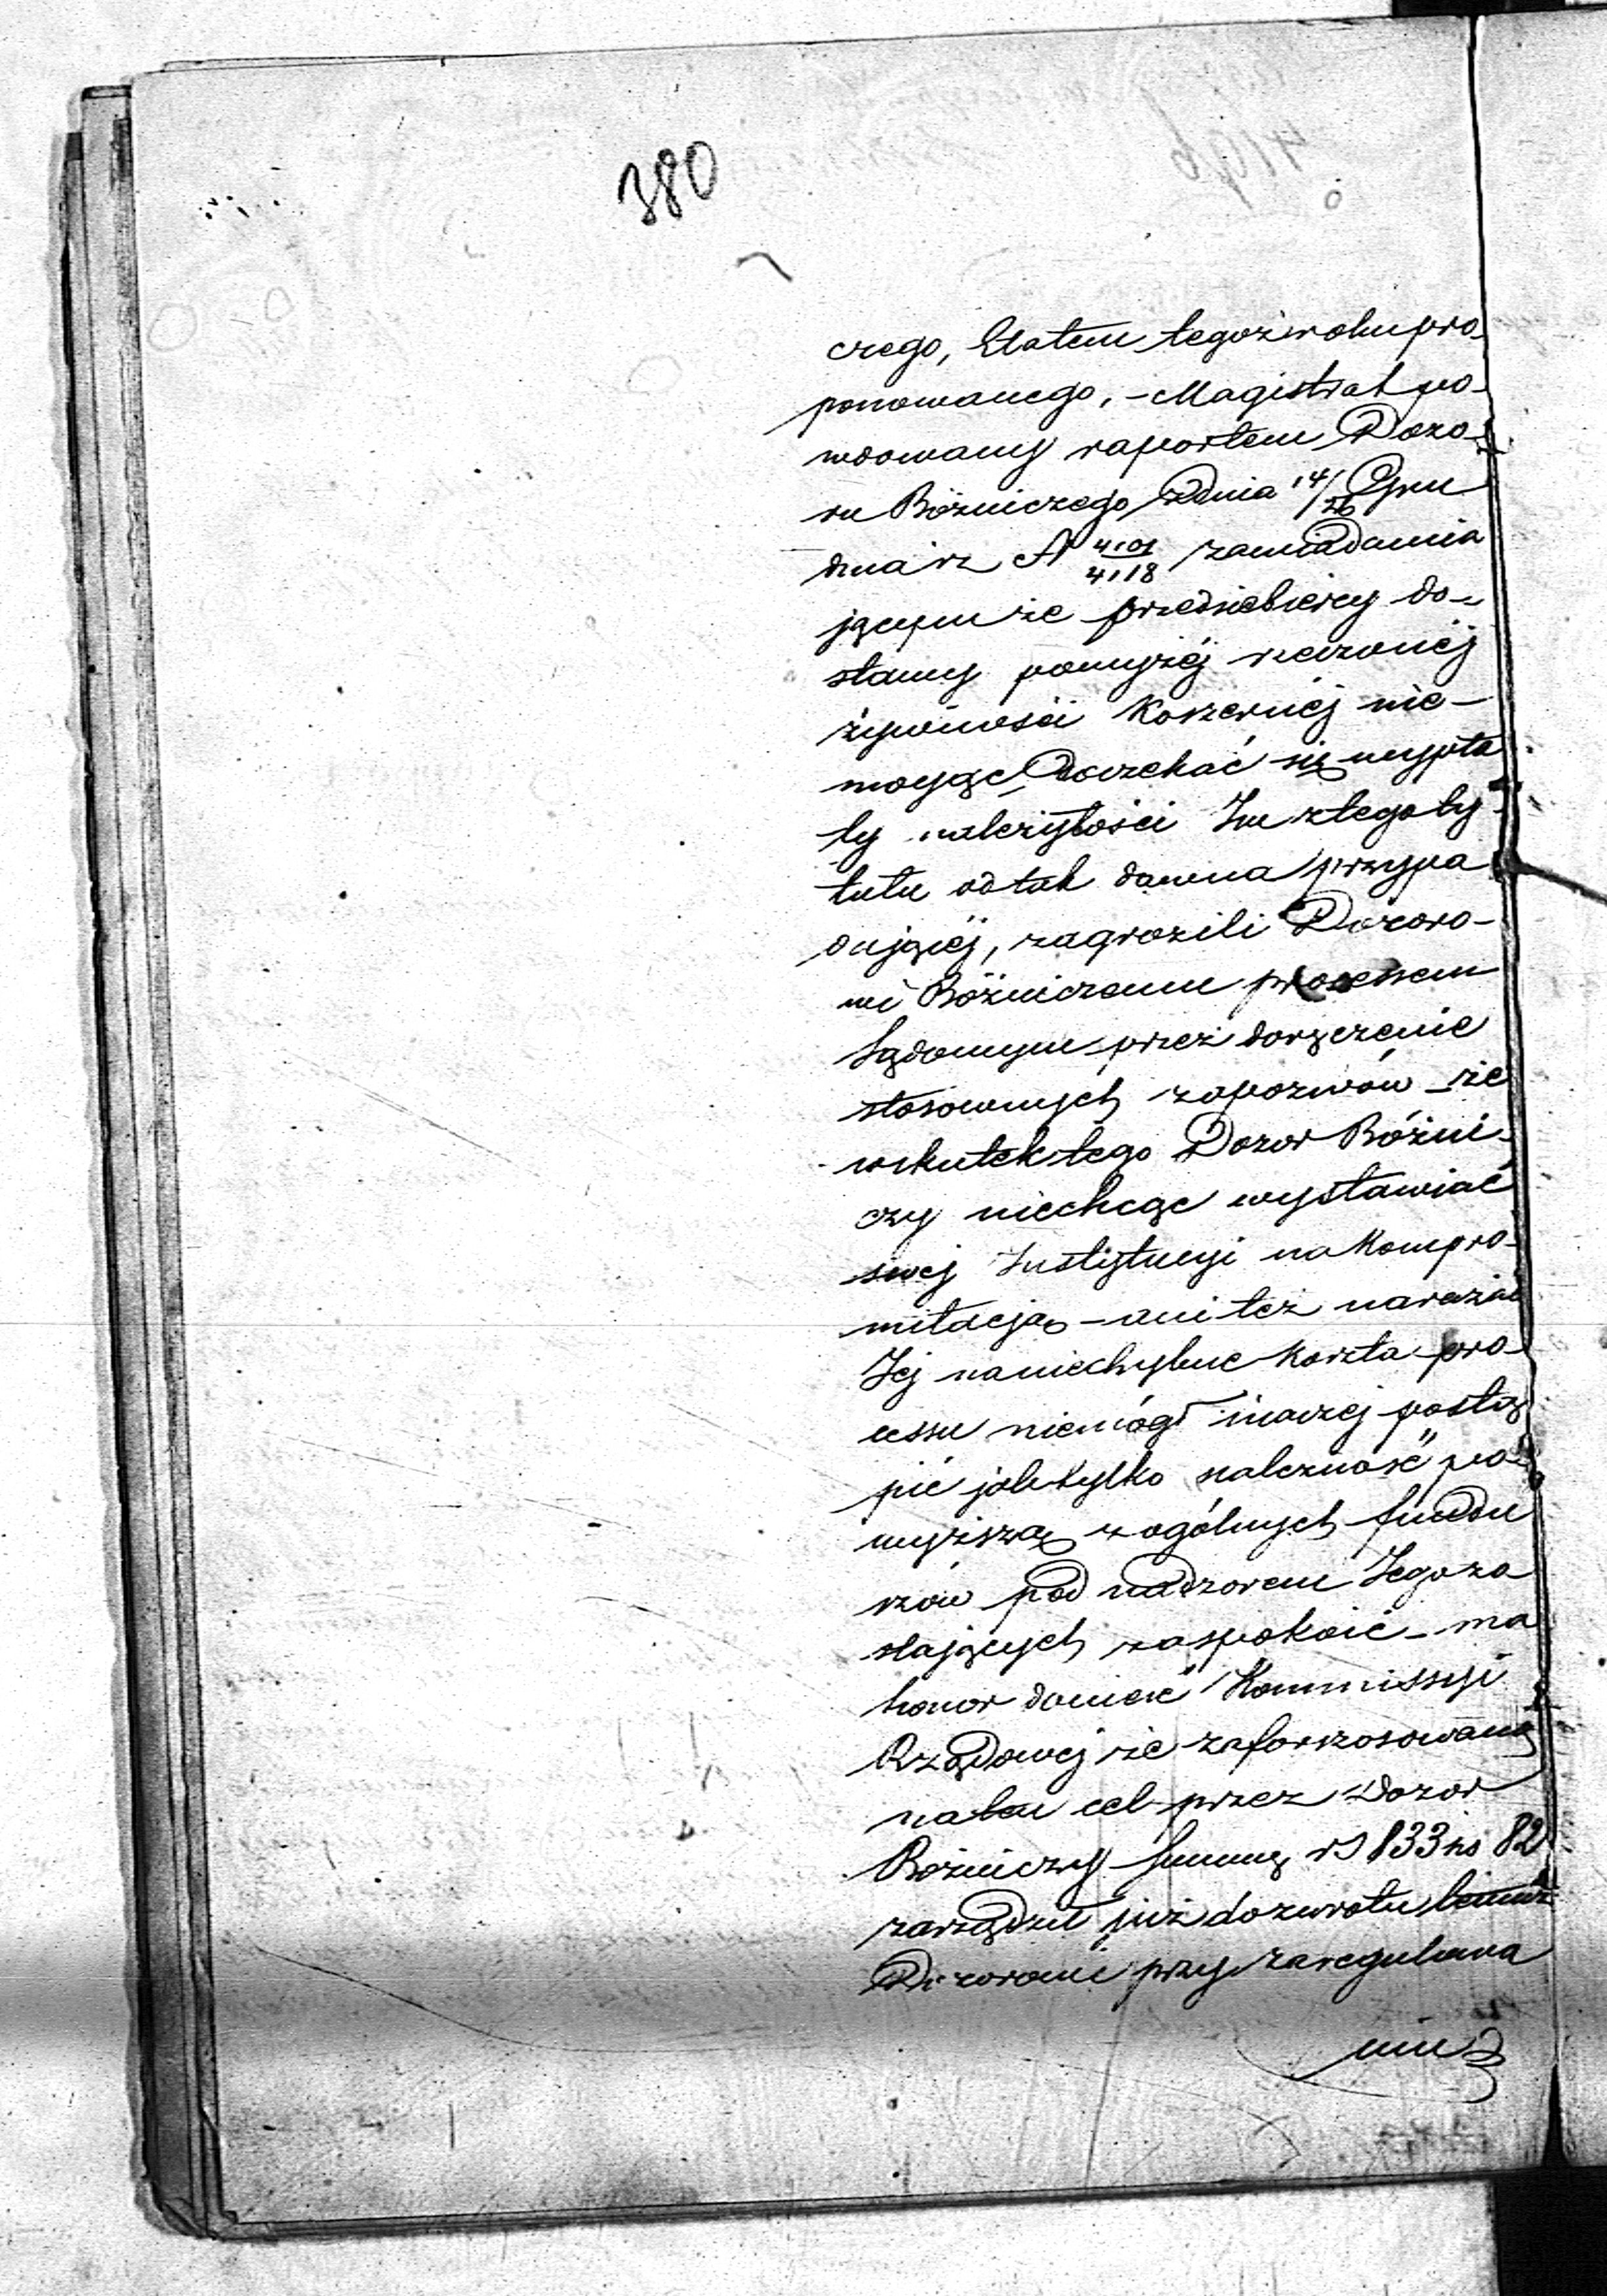 380
czego, Etatem tegoż roku pro
ponowanego, - Magistrat po-
wodowany raportem Dozo-
ru Bóżniczego z dnia 14/26 Gru
dnia rz N 4101/4118 zawiadamia
jącym że przedsiębiercy do-
stawy powyżéj rzeczonéj
żywności Koszernéj nie-
mogąc doczekać się wypła
ty należytości Im z tego ty
tułu od tak dawna przypa
dającéj, zagrozili Dozoro-
wi Bóżniczemu processem
Sądowym przez doręczenie
stosownych zapozwów - że
wskutek tego Dozór Bóżni-
czy niechcąc wystawiać
swej Instytucyi na kompro-
mitacją - ani też narażać
Jej na niechybne koszta pro-
cessu niemógł inaczej postą
pić jak tylko należność po-
wyższą z ogólnych fundu
szów pod nadzorem Jego zo
stających zaspokoić - ma
honor donieść Kommissyi
Rządowej że zaforszosowaną
na ten cel przez Dozór
Bóżniczy Summę rs 833 ks 82
zarządził już do zwrotu temuż
Dozorowi przy zaregulowa
niu